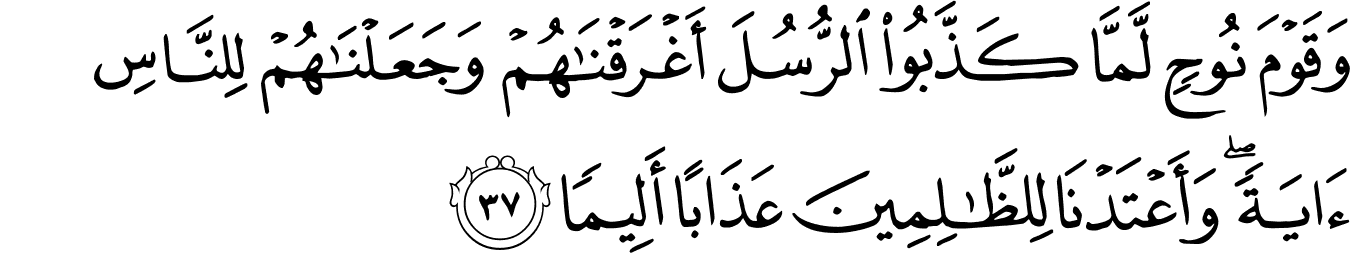 وَقَوْمَ نُوحٍ لَّمَّا كَذَّبُوا۟ ٱلرُّسُلَ أَغْرَقْنَـٰهُمْ وَجَعَلْنَـٰهُمْ لِلنَّاسِ
ءَايَةً ۖ وَأَعْتَدْنَا لِلظَّـٰلِمِينَ عَذَابًا أَلِيمًا ٣٧